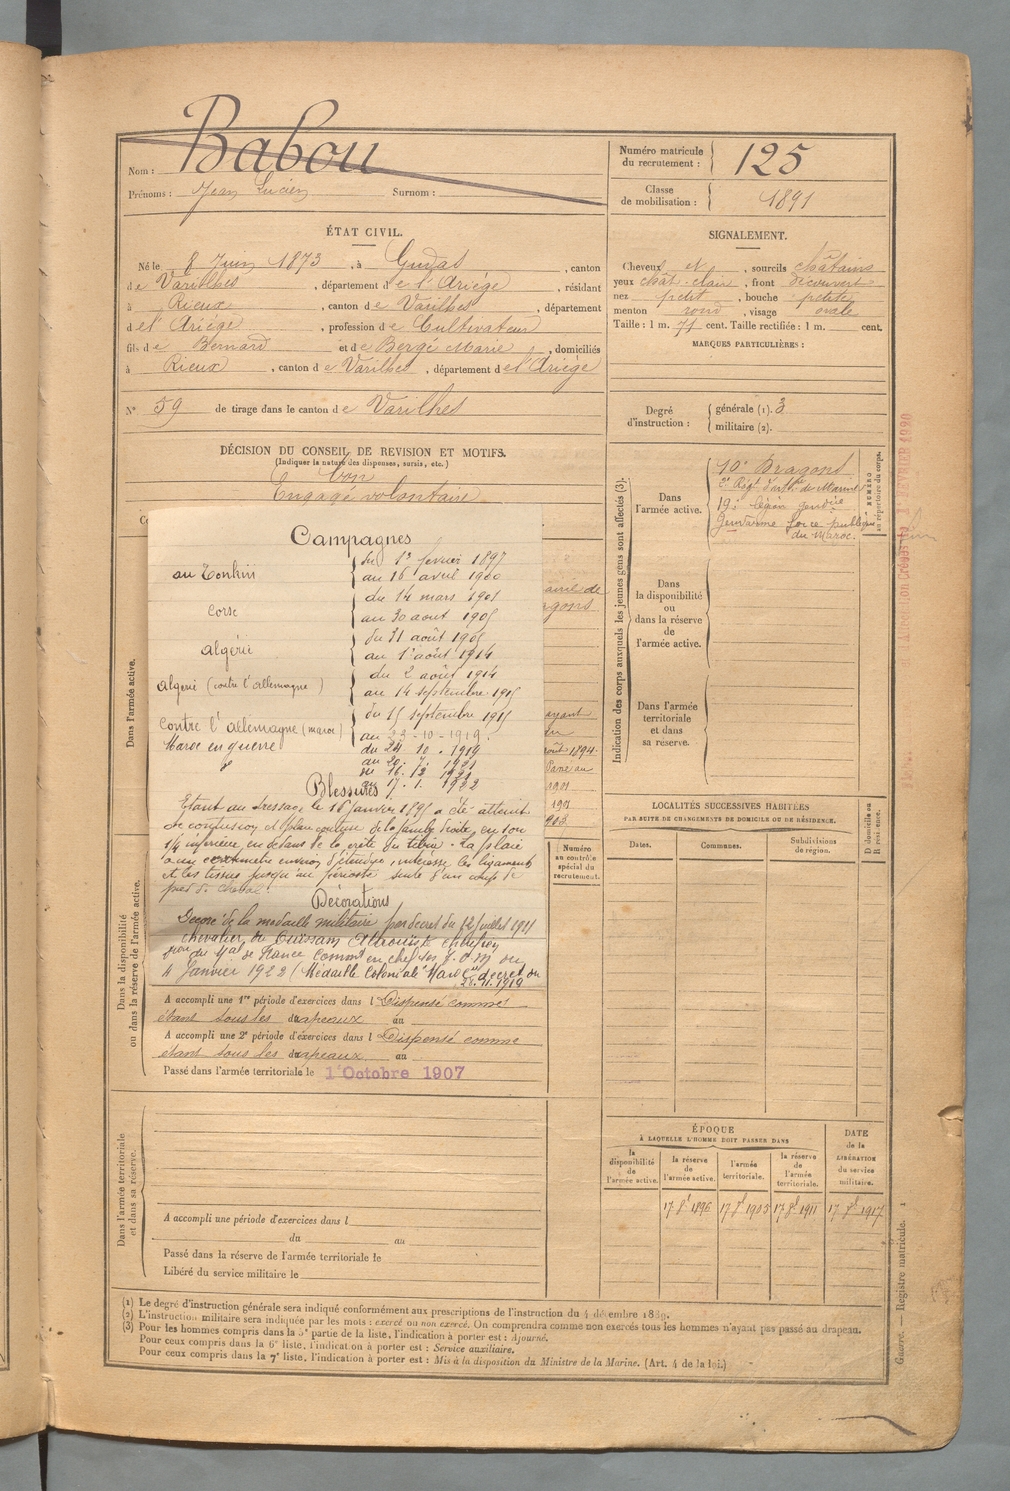 Nom : Babou
Prénoms : Jean Lucien Surnom :
Numéro matricule du recrutement : 125
Classe de mobilisation : 1891
ÉTAT CIVIL.
Né le 8 Juin 1873, à Gudas, canton
de Varilhes, département de l'Ariége, résidant
à Rieux, canton de Varilhes, département
de l'Ariége, profession de Cultivateur
fils de Bernard et de Bergé Marie, domiciliés
à Rieux, canton de Varilhes, département de l'Ariége
N° 59 de tirage dans le canton de Varilhes
SIGNALEMENT.
Cheveux et, sourcils châtains
yeux chât. clairs, front découvert
nez petit, bouche petite
menton rond, visage ovale
Taille : 1 m. 71 cent. Taille rectifiée : 1 m. cent.
MARQUES PARTICULIÈRES :
Degré d'instruction : générale (1). 3
militaire (2).
DÉCISION DU CONSEIL DE REVISION ET MOTIFS.
(Indiquer la nature des dispenses, sursis, etc.)
bon
Engagé volontaire
Campagnes
au Tonkin du 1er fevrier 1897
au 16 avril 1900
Corse du 14 mars 1901
au 30 aout 1905
algérie du 31 août 1905
au 1er août 1914
algerie (contre l'allemagne) du 2 août 1914
au 14 septembre 1915
contre l'allemagne (maroc) du 15 septembre 1915
au 23-10-1919.
Maroc en guerre du 24.10.1919
au 20.7.1921
du 16.12.1921
au 17.1.1922
Blessures
Etant au dressage le 16 janvier 1895 a été atteint
de contusion et plaie contuse de la jambe droite, en son
1/4 inférieur en dedans de la crête du tibia. La plaie
d'un centimètre environ d'étendue intéresse les ligaments
et les tissus jusqu'au périoste suite d'un coup de
pied de cheval.
Décorations
Décoré de la médaille militaire par décret du 12 juillet 1911
chevalier du Ouissam Alaouite
du Mal de France Commt en chef
4 Janvier 1922 / Médaille Coloniale "Maroc" decret du
28.11.1919
aine de
agons
ayant
août 1894.
Passé au
1901
1901
903
Dans l'armée active.
Dans la disponibilité
ou dans la réserve de l'armée active.
Numéro
au contrôle
spécial du
recrutement.
A accompli une 1re période d'exercices dans l Dispensé comme
étant sous les drapeaux au
A accompli une 2e période d'exercices dans l Dispensé comme
étant sous les drapeaux au
Passé dans l'armée territoriale le 1er Octobre 1907
Dans l'armée territoriale
et dans sa réserve.
A accompli une période d'exercices dans l
du au
Passé dans la réserve de l'armée territoriale le
Libéré du service militaire le
Indication des corps auxquels les jeunes gens sont affectés (3).
Dans
l'armée active.
10e Dragons
2e Régt d'artie de Marine
19e légion gendrie
Gendarme Force publique
du Maroc.
NUMÉRO
au répertoire du corps.
Dans
la disponibilité
ou
dans la réserve
de
l'armée active.
Dans l'armée
territoriale
et dans
sa réserve.
LOCALITÉS SUCCESSIVES HABITÉES
PAR SUITE DE CHANGEMENTS DE DOMICILE OU DE RÉSIDENCE.
Dates.
Communes.
Subdivisions
de région.
D domicile ou
R résidence.
ÉPOQUE
À LAQUELLE L'HOMME DOIT PASSER DANS
la
disponibilité
de
l'armée active.
la réserve
de
l'armée active.
l'armée
territoriale.
la réserve
de
l'armée
territoriale.
DATE
de la
LIBÉRATION
du service
militaire.
17 8e 1896
17 8e 1905
17 8e 1911
17 8e 1917
Guerre. — Registre matricule. 1
(1) Le degré d'instruction générale sera indiqué conformément aux prescriptions de l'instruction du 4 décembre 1889.
(2) L'instruction militaire sera indiquée par les mots : exercé ou non exercé. On comprendra comme non exercés tous les hommes n'ayant pas passé au drapeau.
(3) Pour les hommes compris dans la 5e partie de la liste, l'indication à porter est : Ajourné.
Pour ceux compris dans la 6e liste, l'indication à porter est : Service auxiliaire.
Pour ceux compris dans la 7e liste, l'indication à porter est : Mis à la disposition du Ministre de la Marine. (Art. 4 de la loi.)